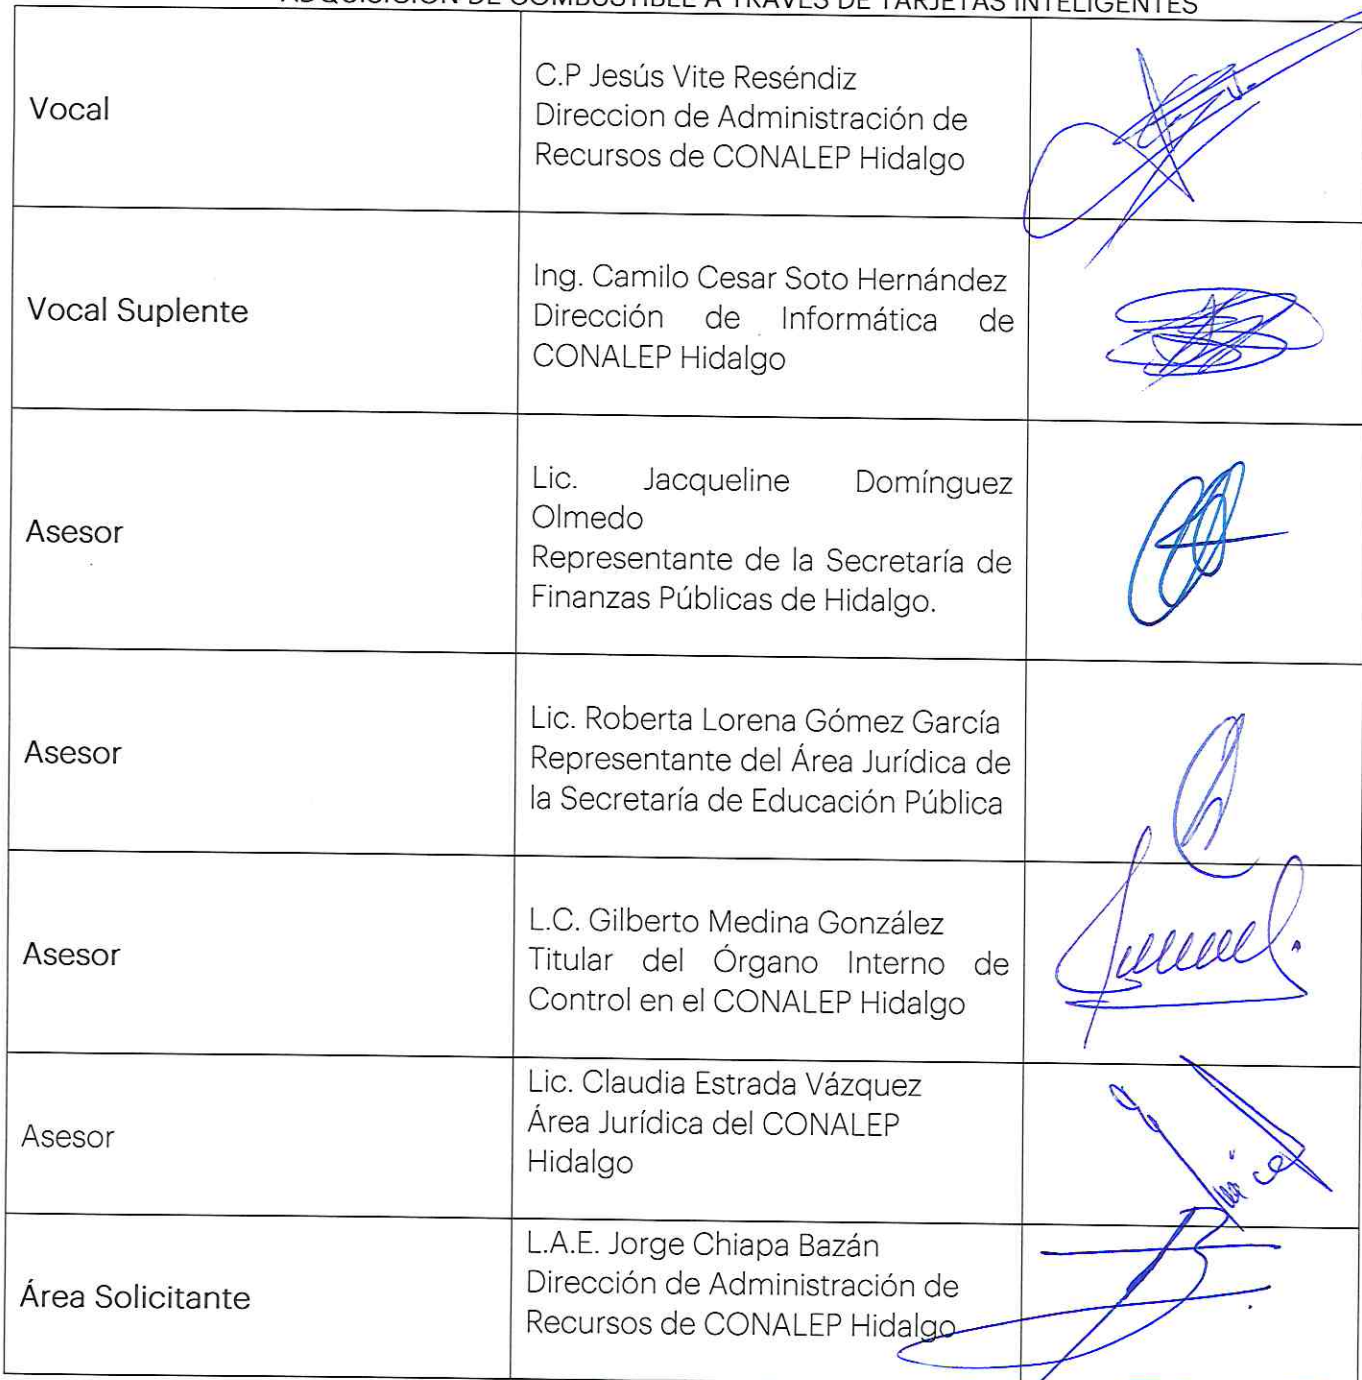 ADQUISICIÓN DE COMBUSTIBLE A TRAVÉS DE TARJETAS INTELIGENTES
Vocal
C.P Jesús Vite Reséndiz
Direccion de Administración de
Recursos de CONALEP Hidalgo
Vocal Suplente
Ing. Camilo Cesar Soto Hernández
Dirección de Informática de
CONALEP Hidalgo
Asesor
Lic. Jacqueline Domínguez
Olmedo
Representante de la Secretaría de
Finanzas Públicas de Hidalgo.
Asesor
Lic. Roberta Lorena Gómez García
Representante del Área Jurídica de
la Secretaría de Educación Pública
Asesor
L.C. Gilberto Medina González
Titular del Órgano Interno de
Control en el CONALEP Hidalgo
Asesor
Lic. Claudia Estrada Vázquez
Área Jurídica del CONALEP
Hidalgo
Área Solicitante
L.A.E. Jorge Chiapa Bazán
Dirección de Administración de
Recursos de CONALEP Hidalgo